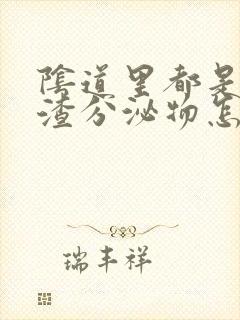 陰道里都是
渣分泌物怎
瑞丰祥